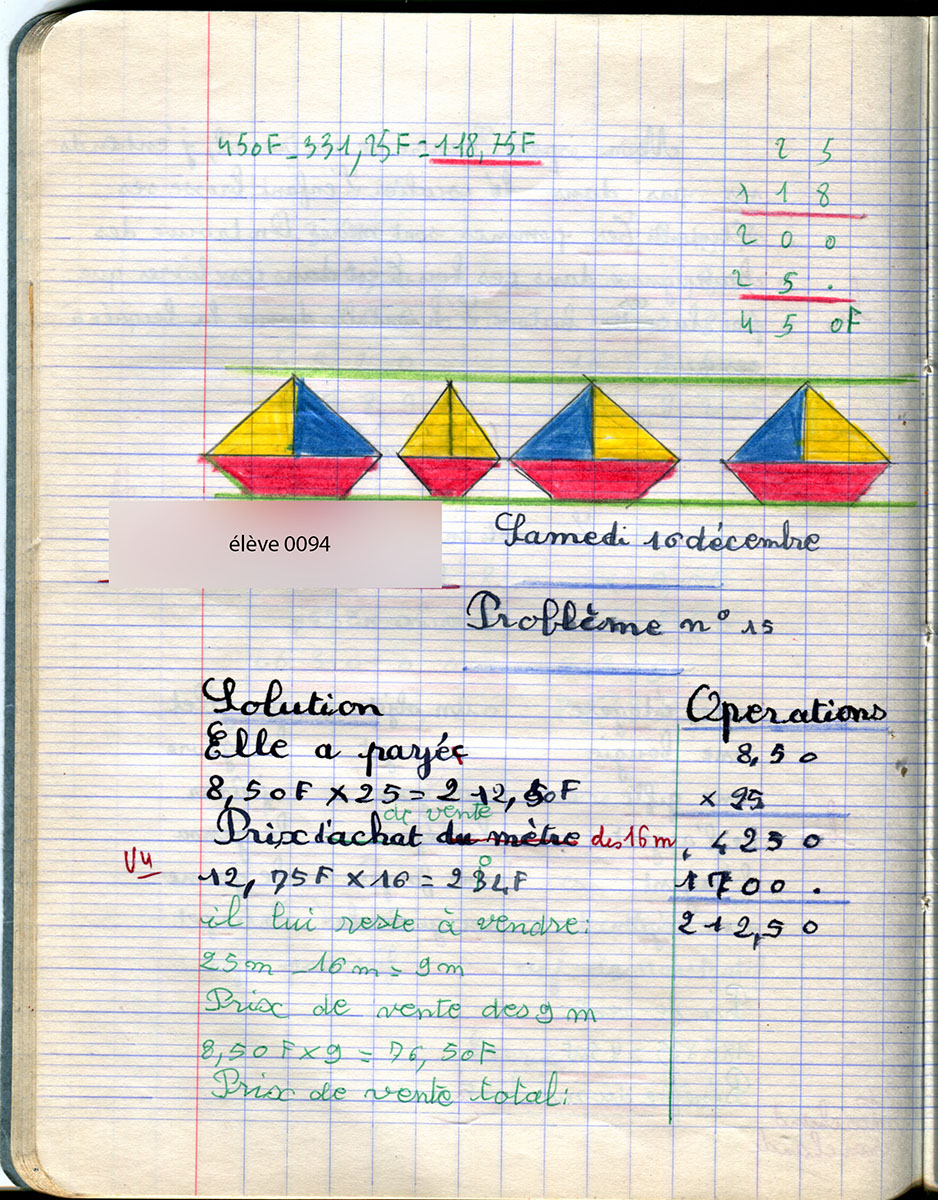 450F - 331,25F = 118,75F
2 5
1 1 8
2 0 0
2 5 .
4 5 0F
élève 0094
Samedi 16 décembre
Problème n° 15
Solution
Elle a payée
8,50F × 25 = 212,50F
de vente
Prix d'achat du mètre des 16 m
Vu
12,75F × 16 = 204F
il lui reste à vendre:
25m - 16m = 9m
Prix de vente des 9 m
8,50F × 9 = 76,50F
Prix de vente total:
Operations
8,50
× 25
4250
1700 .
212,50